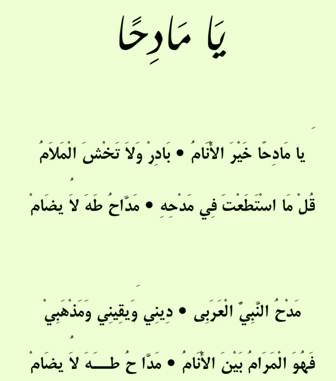 يَا مَادِحًا
يا مَادِحًا خَيْرَ الأَنَامُ • بَادِرْ وَلاَ تَخْشَ الْمَلاَمُ
قُلْ مَا اسْتَطَعْتَ فِي مَدْحِهِ • مَدَّاحُ طَهَ لاَ يضَامْ
مَدْحُ النَّبِيِّ الْعَرَبِى • دِينِي وَيَقِينِي وَمَذْهَبِيْ
فَهُوَ الْمَرَامُ بَيْنَ الأَنَامُ • مَدَّا حُ طـــهَ لاَ يضَامْ